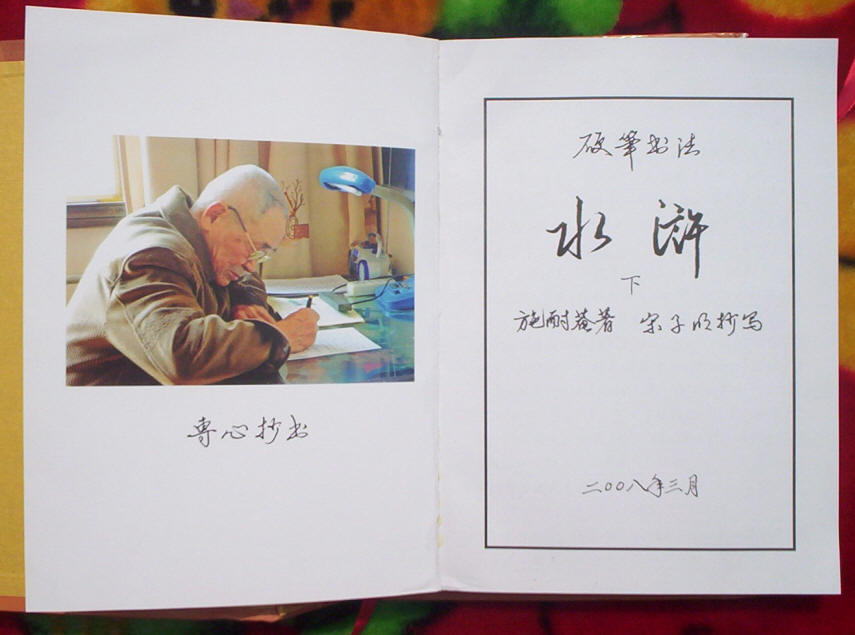 專心抄书
硬筆书法
水滸
下
施耐菴著 宋子明抄写
二〇〇八年三月